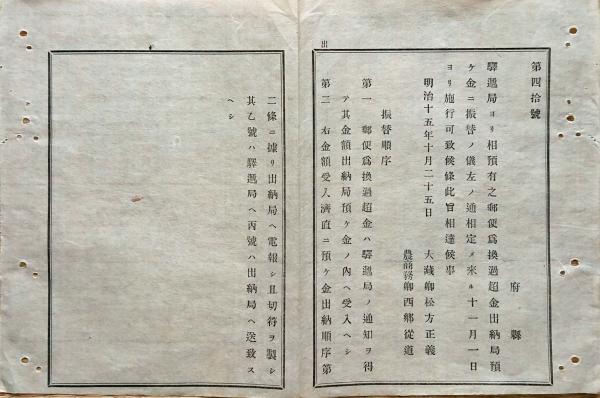 出
第四拾號
府縣
驛遞局ヨリ相預有之郵便爲換過超金出納局預
ケ金ニ振替ノ儀左ノ通相定メ來ル十一月一日
ヨリ施行可致候條此旨相達候事
明治十五年十月二十五日
大藏卿松方正義
農商務卿西鄕從道
振替順序
第一 郵便爲換過超金ハ驛遞局ノ通知ヲ得
テ其金額出納局預ケ金ノ內ヘ受入ヘシ
第二 右金額受入濟直ニ預ケ金出納順序第
二條ニ據リ出納局ヘ電報シ且切符ヲ製シ
其乙號ハ驛遞局ヘ丙號ハ出納局ヘ送致ス
ヘシ